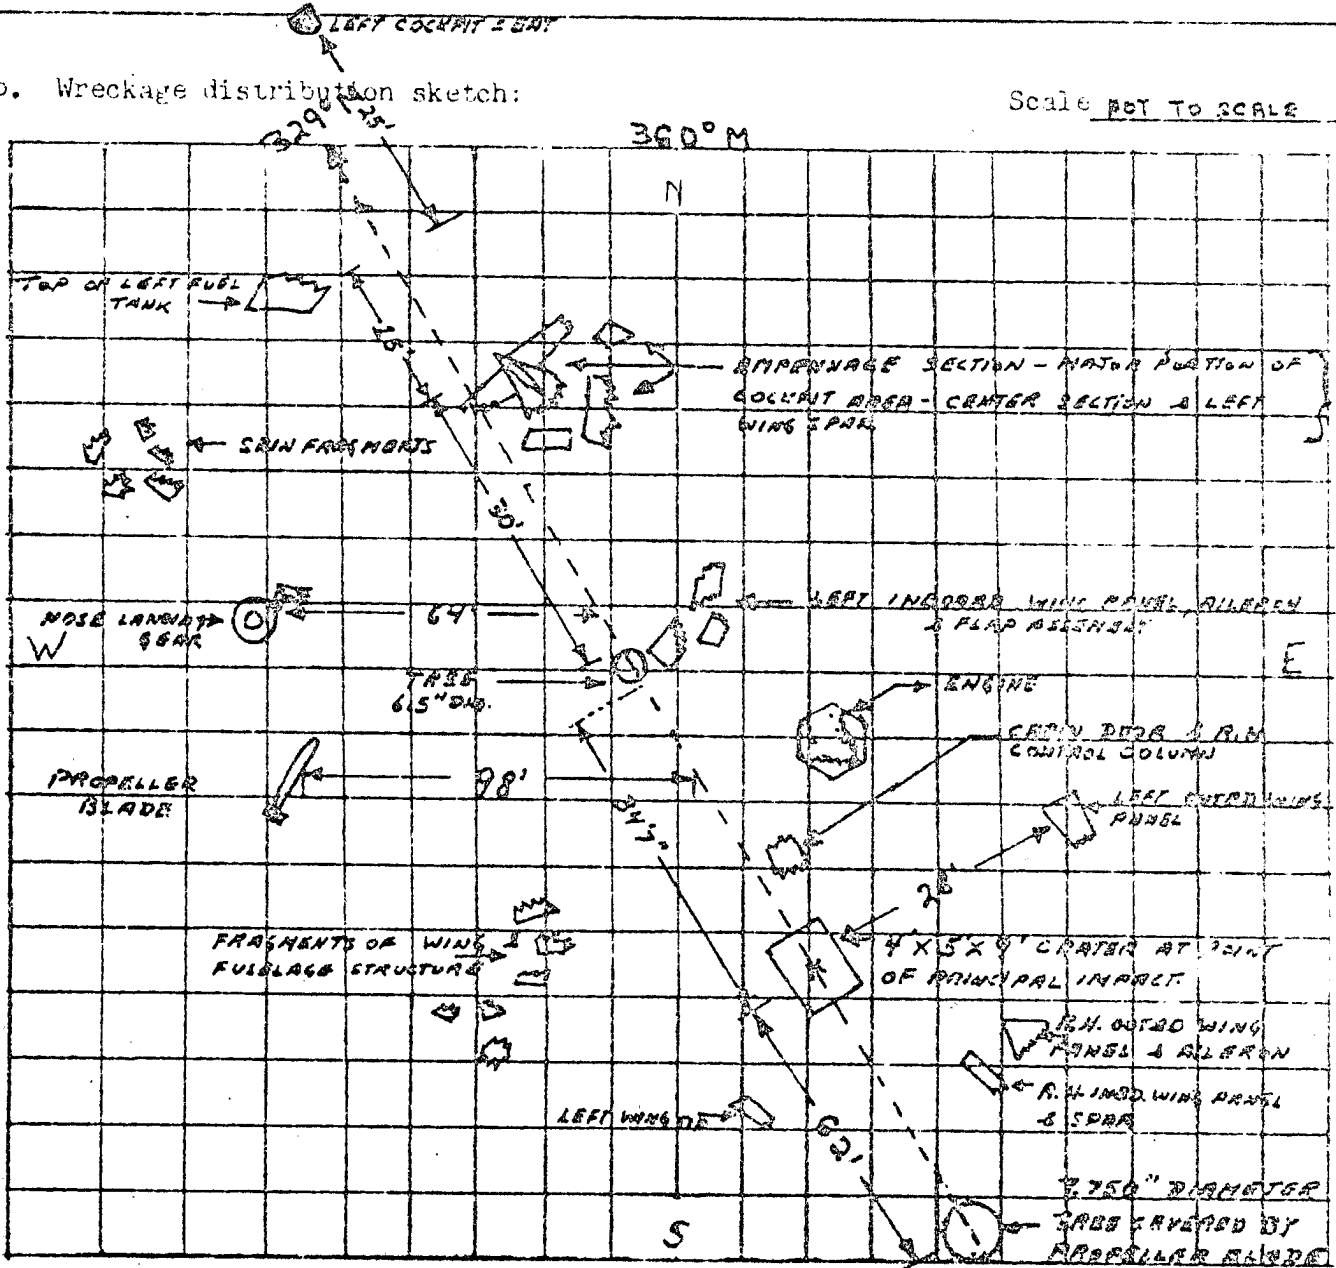 LEFT COCKPIT SEAT
Wreckage distribution sketch:
Scale NOT TO SCALE
329°
25'
360° M
N
TOP OF LEFT FUEL
TANK
15'
EMPENNAGE SECTION - MAJOR PORTION OF
COCKPIT AREA - CENTER SECTION & LEFT
WING SPAR
SKIN FRAGMENTS
30'
NOSE LANDING
GEAR
W
LEFT INBOARD WING PANEL, AILERON
& FLAP ASSEMBLY
E
TREE
6.5" DIA.
ENGINE
CABIN DOOR & R.H.
CONTROL COLUMN
PROPELLER
BLADE
98'
LEFT OUTBD WING
PANEL
FRAGMENTS OF WING
FUSELAGE STRUCTURE
CRATER AT POINT
OF PRINCIPAL IMPACT
R.H. OUTBD WING
PANEL & AILERON
R.H. INBD. WING PANEL
& SPAR
LEFT WING
62'
S
DIAMETER
TREE SEVERED BY
PROPELLER BLADE